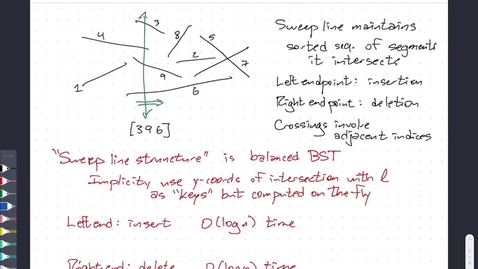 3
4
8
5
2
9
7
1
6
[396]
Sweep line maintains
sorted seq. of segments
it intersects
Left endpoint: insertion
Right endpoint: deletion
Crossings involve
adjacent indices
"Sweep line structure" is balanced BST
Implicitly use y-coords of intersection with l
as "keys" but computed on the fly
Left end: insert O(log n) time
Right end: delete O(log n) time